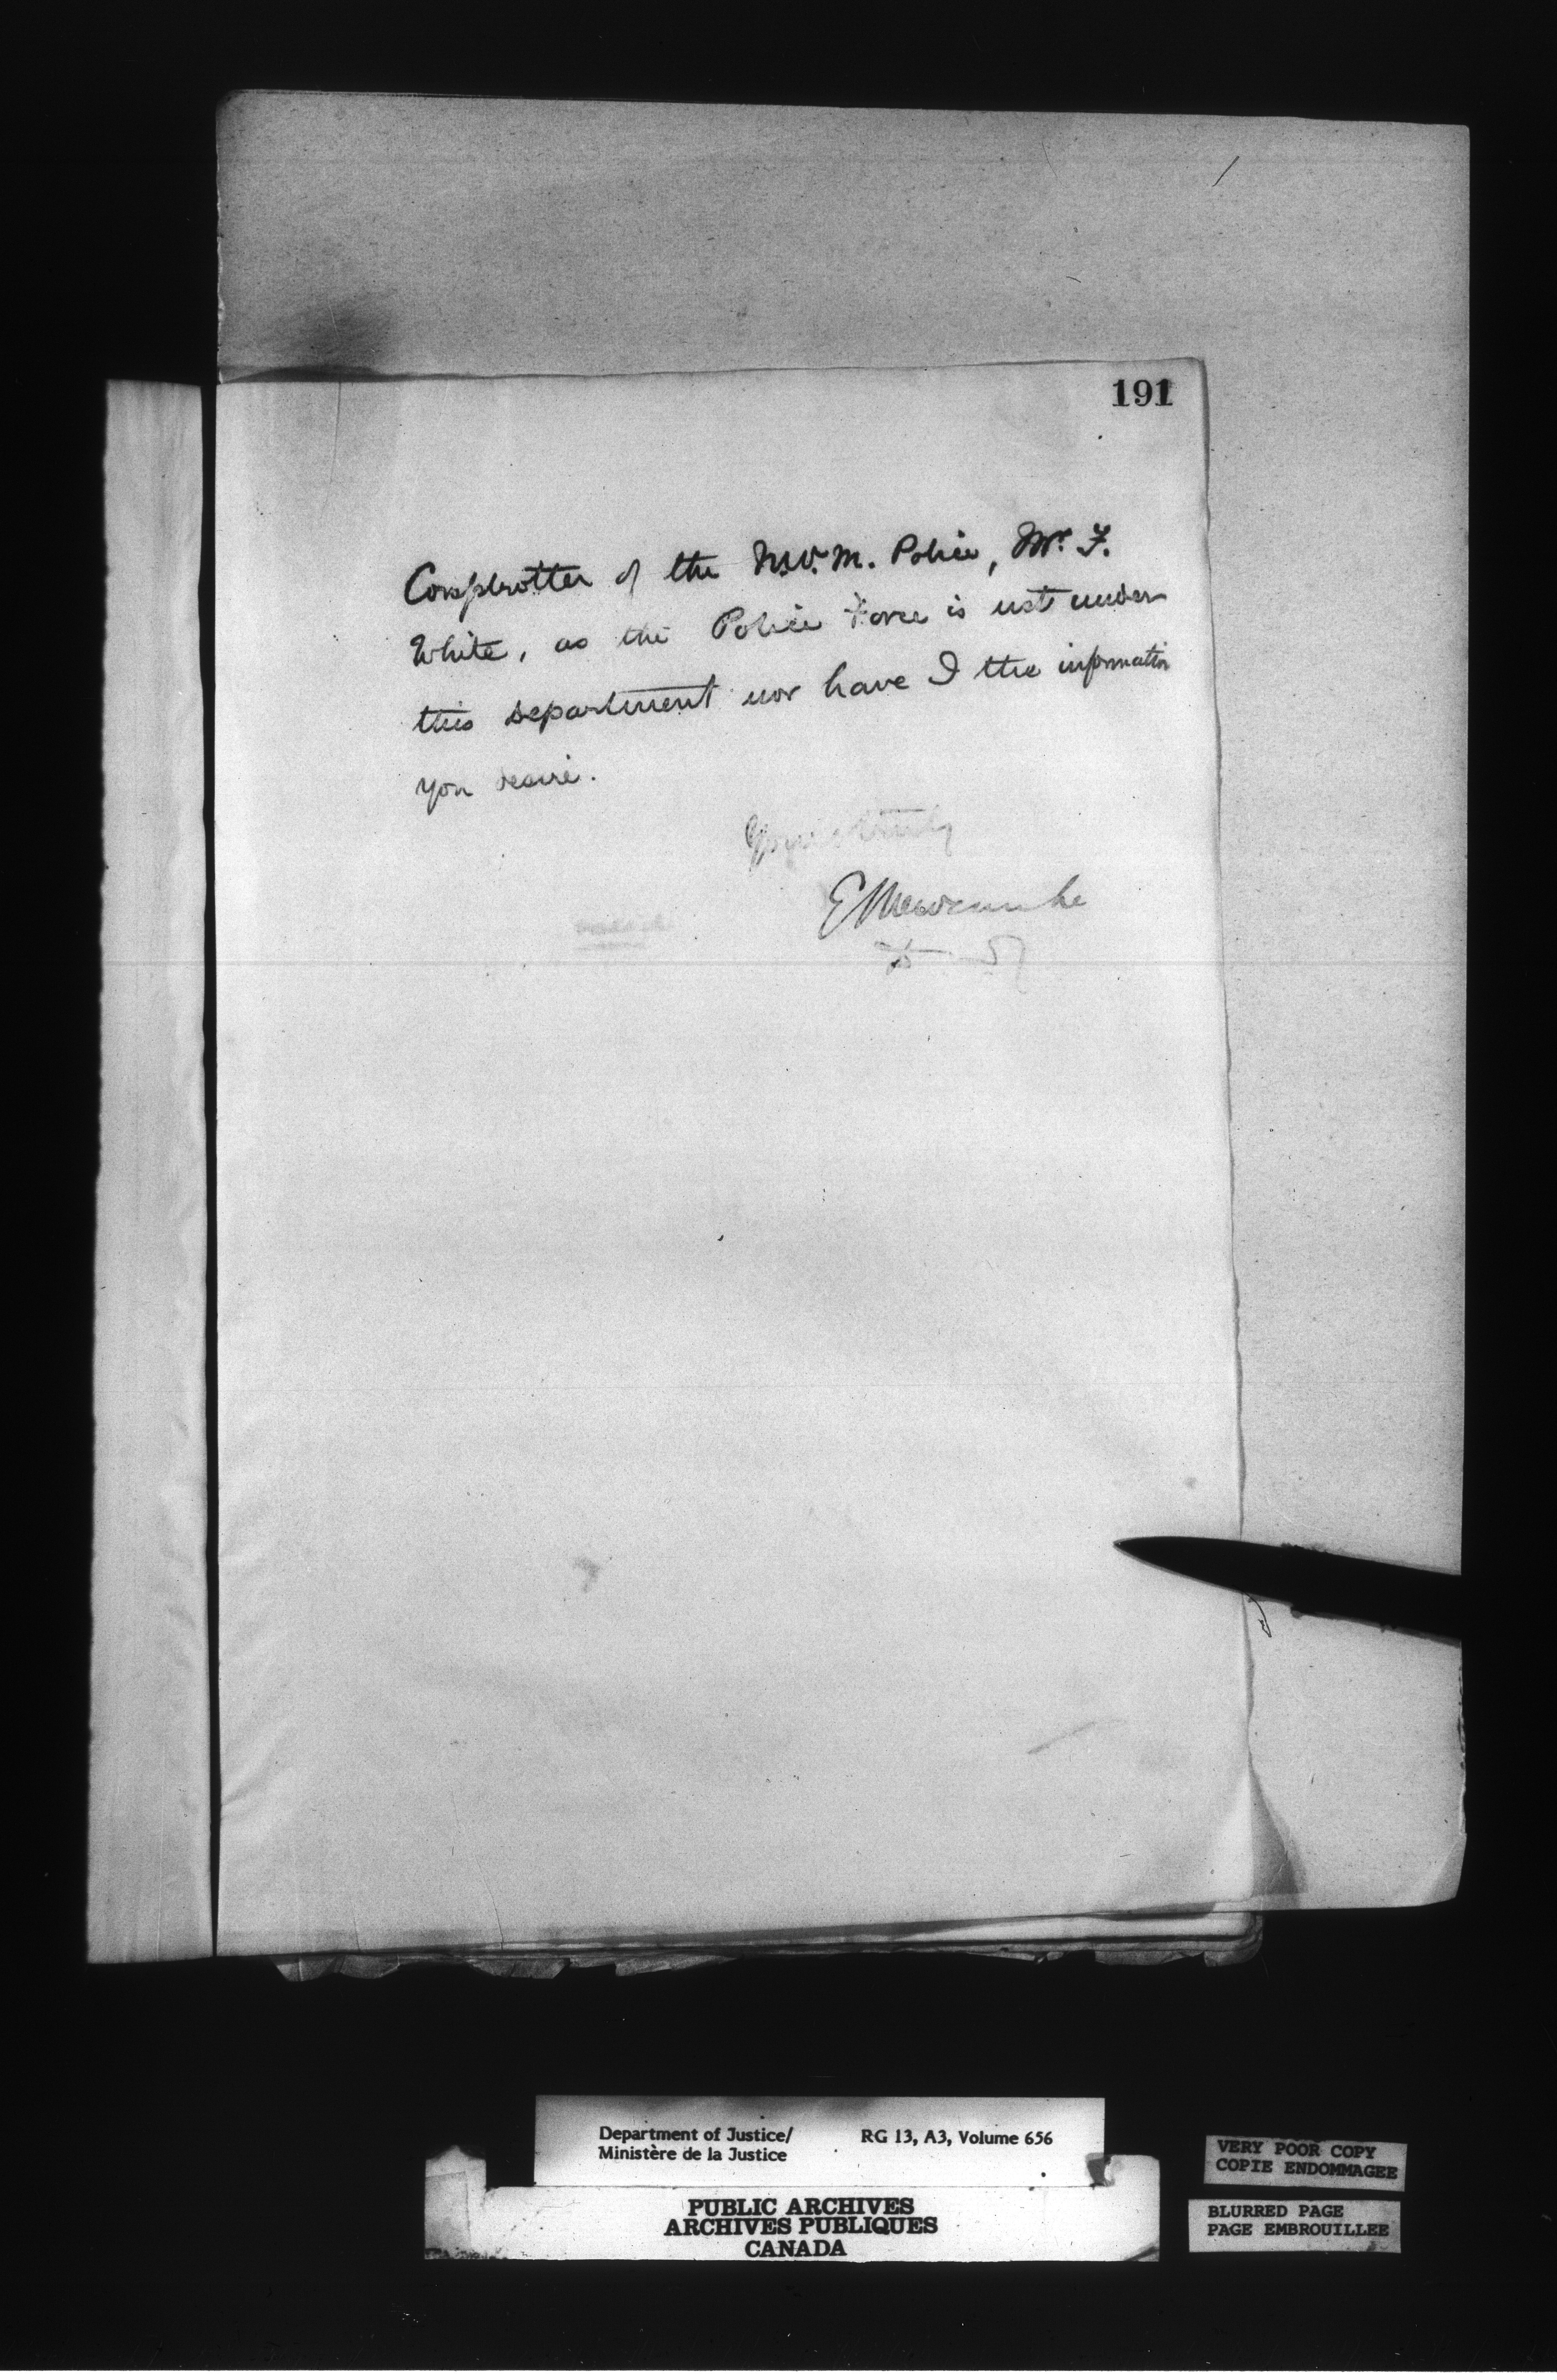 191
Comptroller of the N.W.M. Police, Mr. F.
White, as the Police Force is not under
this department nor have I the information
you desire.
Yours truly
E Newcombe
Department of Justice/
Ministère de la Justice
RG 13, A3, Volume 656
PUBLIC ARCHIVES
ARCHIVES PUBLIQUES
CANADA
VERY POOR COPY
COPIE ENDOMMAGEE
BLURRED PAGE
PAGE EMBROUILLEE